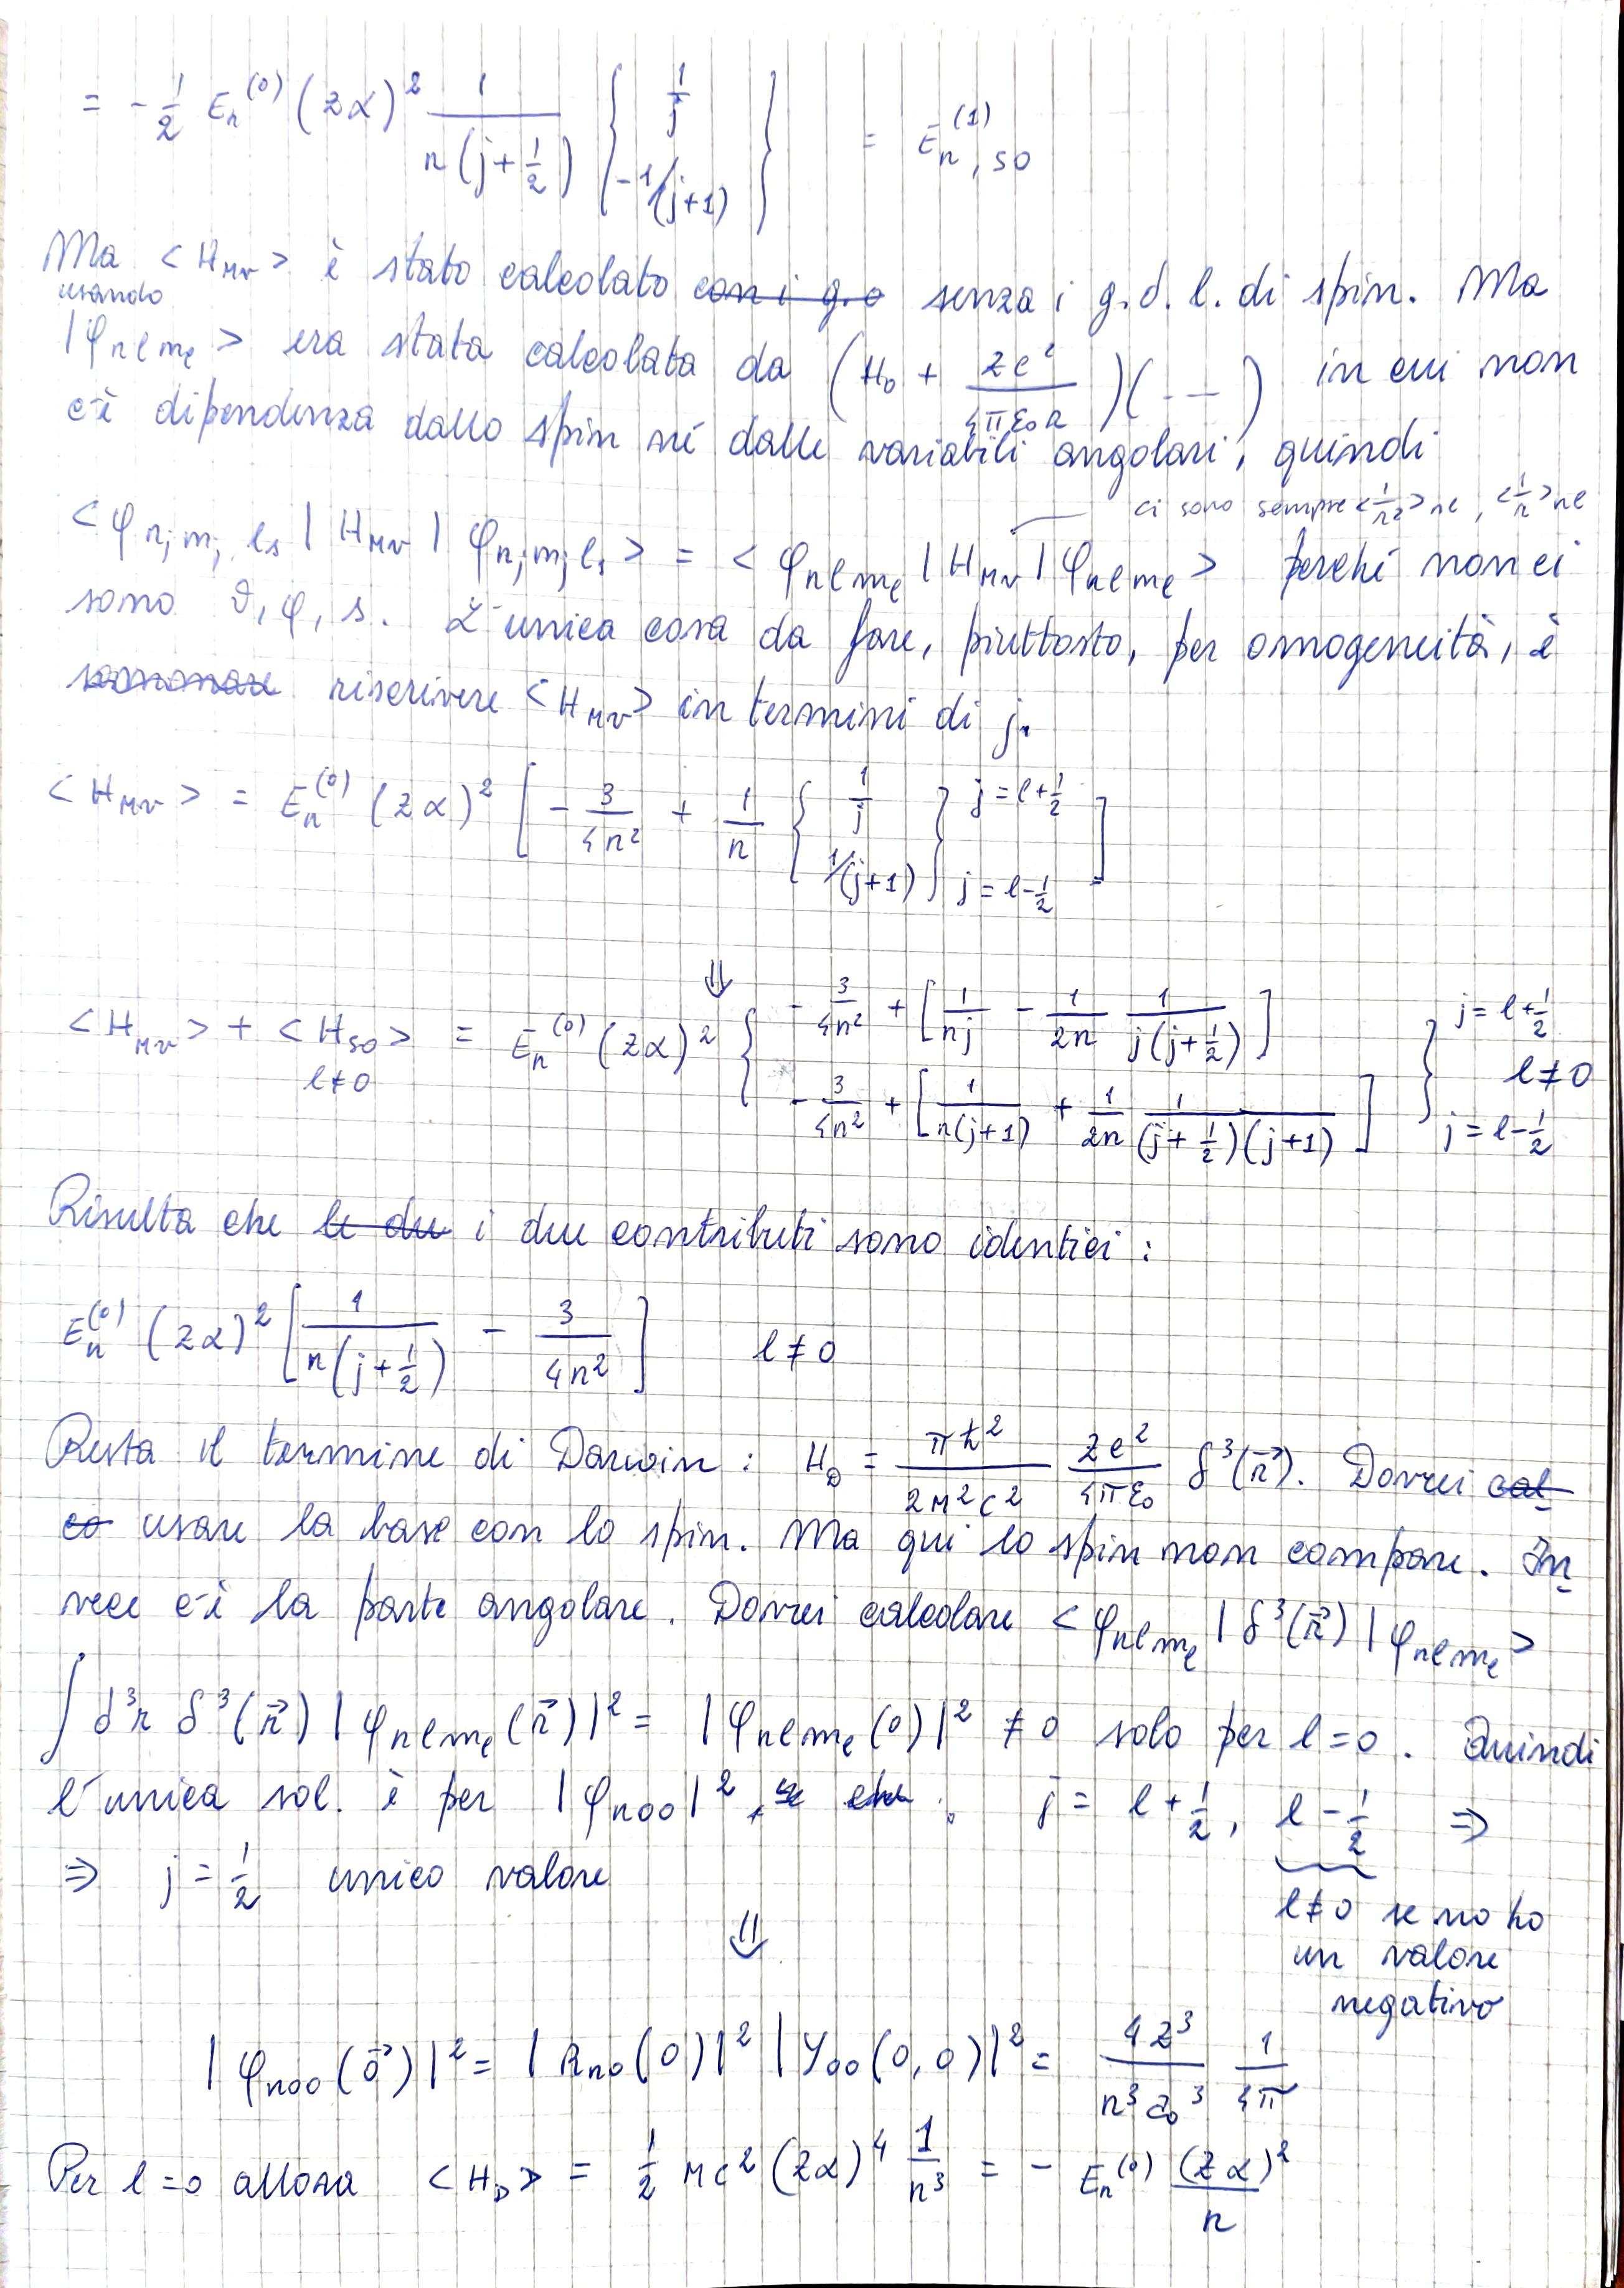 = - 1/2 Eₙ⁽⁰⁾ (zα)² 1/(n(j+1/2)) { 1/j ; -1/(j+1) } = Eₙ,so⁽¹⁾
Ma <H_MV> è stato calcolato con i g.o senza i g.d.l. di spin. Ma
usando
|φ_nlm_l> era stata calcolata da (H₀ + ze²/(4πε₀r))(--) in cui non
c'è dipendenza dallo spin né dalle variabili angolari, quindi
ci sono sempre <1/r²>nl, <1/r>nl
<φ_njm_jls|H_MV|φ_njm_jls> = <φ_nlm_l|H_MV|φ_nlm_l> perché non ci
sono ϑ, φ, s. L'unica cosa da fare, piuttosto, per omogeneità, è
riscrivere <H_MV> in termini di j.
<H_MV> = Eₙ⁽⁰⁾ (zα)² [ - 3/(4n²) + 1/n { 1/j ; 1/(j+1) } j=l+1/2 ; j=l-1/2 ]
⇓
<H_MV> + <H_SO> = Eₙ⁽⁰⁾ (zα)² { - 3/(4n²) + [ 1/(nj) - 1/(2n) 1/(j(j+1/2)) ] j=l+1/2
l≠0 - 3/(4n²) + [ 1/(n(j+1)) + 1/(2n) 1/((j+1/2)(j+1)) ] } j=l-1/2 l≠0
Risulta che le due i due contributi sono identici:
Eₙ⁽⁰⁾ (zα)² [ 1/(n(j+1/2)) - 3/(4n²) ] l≠0
Resta il termine di Darwin: H_D = πħ²/(2M²c²) ze²/(4πε₀) δ³(r⃗). Dovrei cal-
co usare la base con lo spin. Ma qui lo spin non compare. In-
vece c'è la parte angolare. Dovrei calcolare <φ_nlm_l|δ³(r⃗)|φ_nlm_l>
∫d³r δ³(r⃗)|φ_nlm_l(r⃗)|² = |φ_nlm_l(0)|² ≠ 0 solo per l=0. Quindi
l'unica sol. è per |φ_n00|², j = l+1/2, l-1/2 ⇒
⇒ j = 1/2 unico valore
l≠0 se no ho
un valore
negativo
⇓
|φ_n00(0⃗)|² = |R_n0(0)|² |Y₀₀(0,0)|² = 4z³/(n³a₀³) 1/(4π)
Per l=0 allora <H_D> = 1/2 Mc² (zα)⁴ 1/n³ = - Eₙ⁽⁰⁾ (zα)²/n